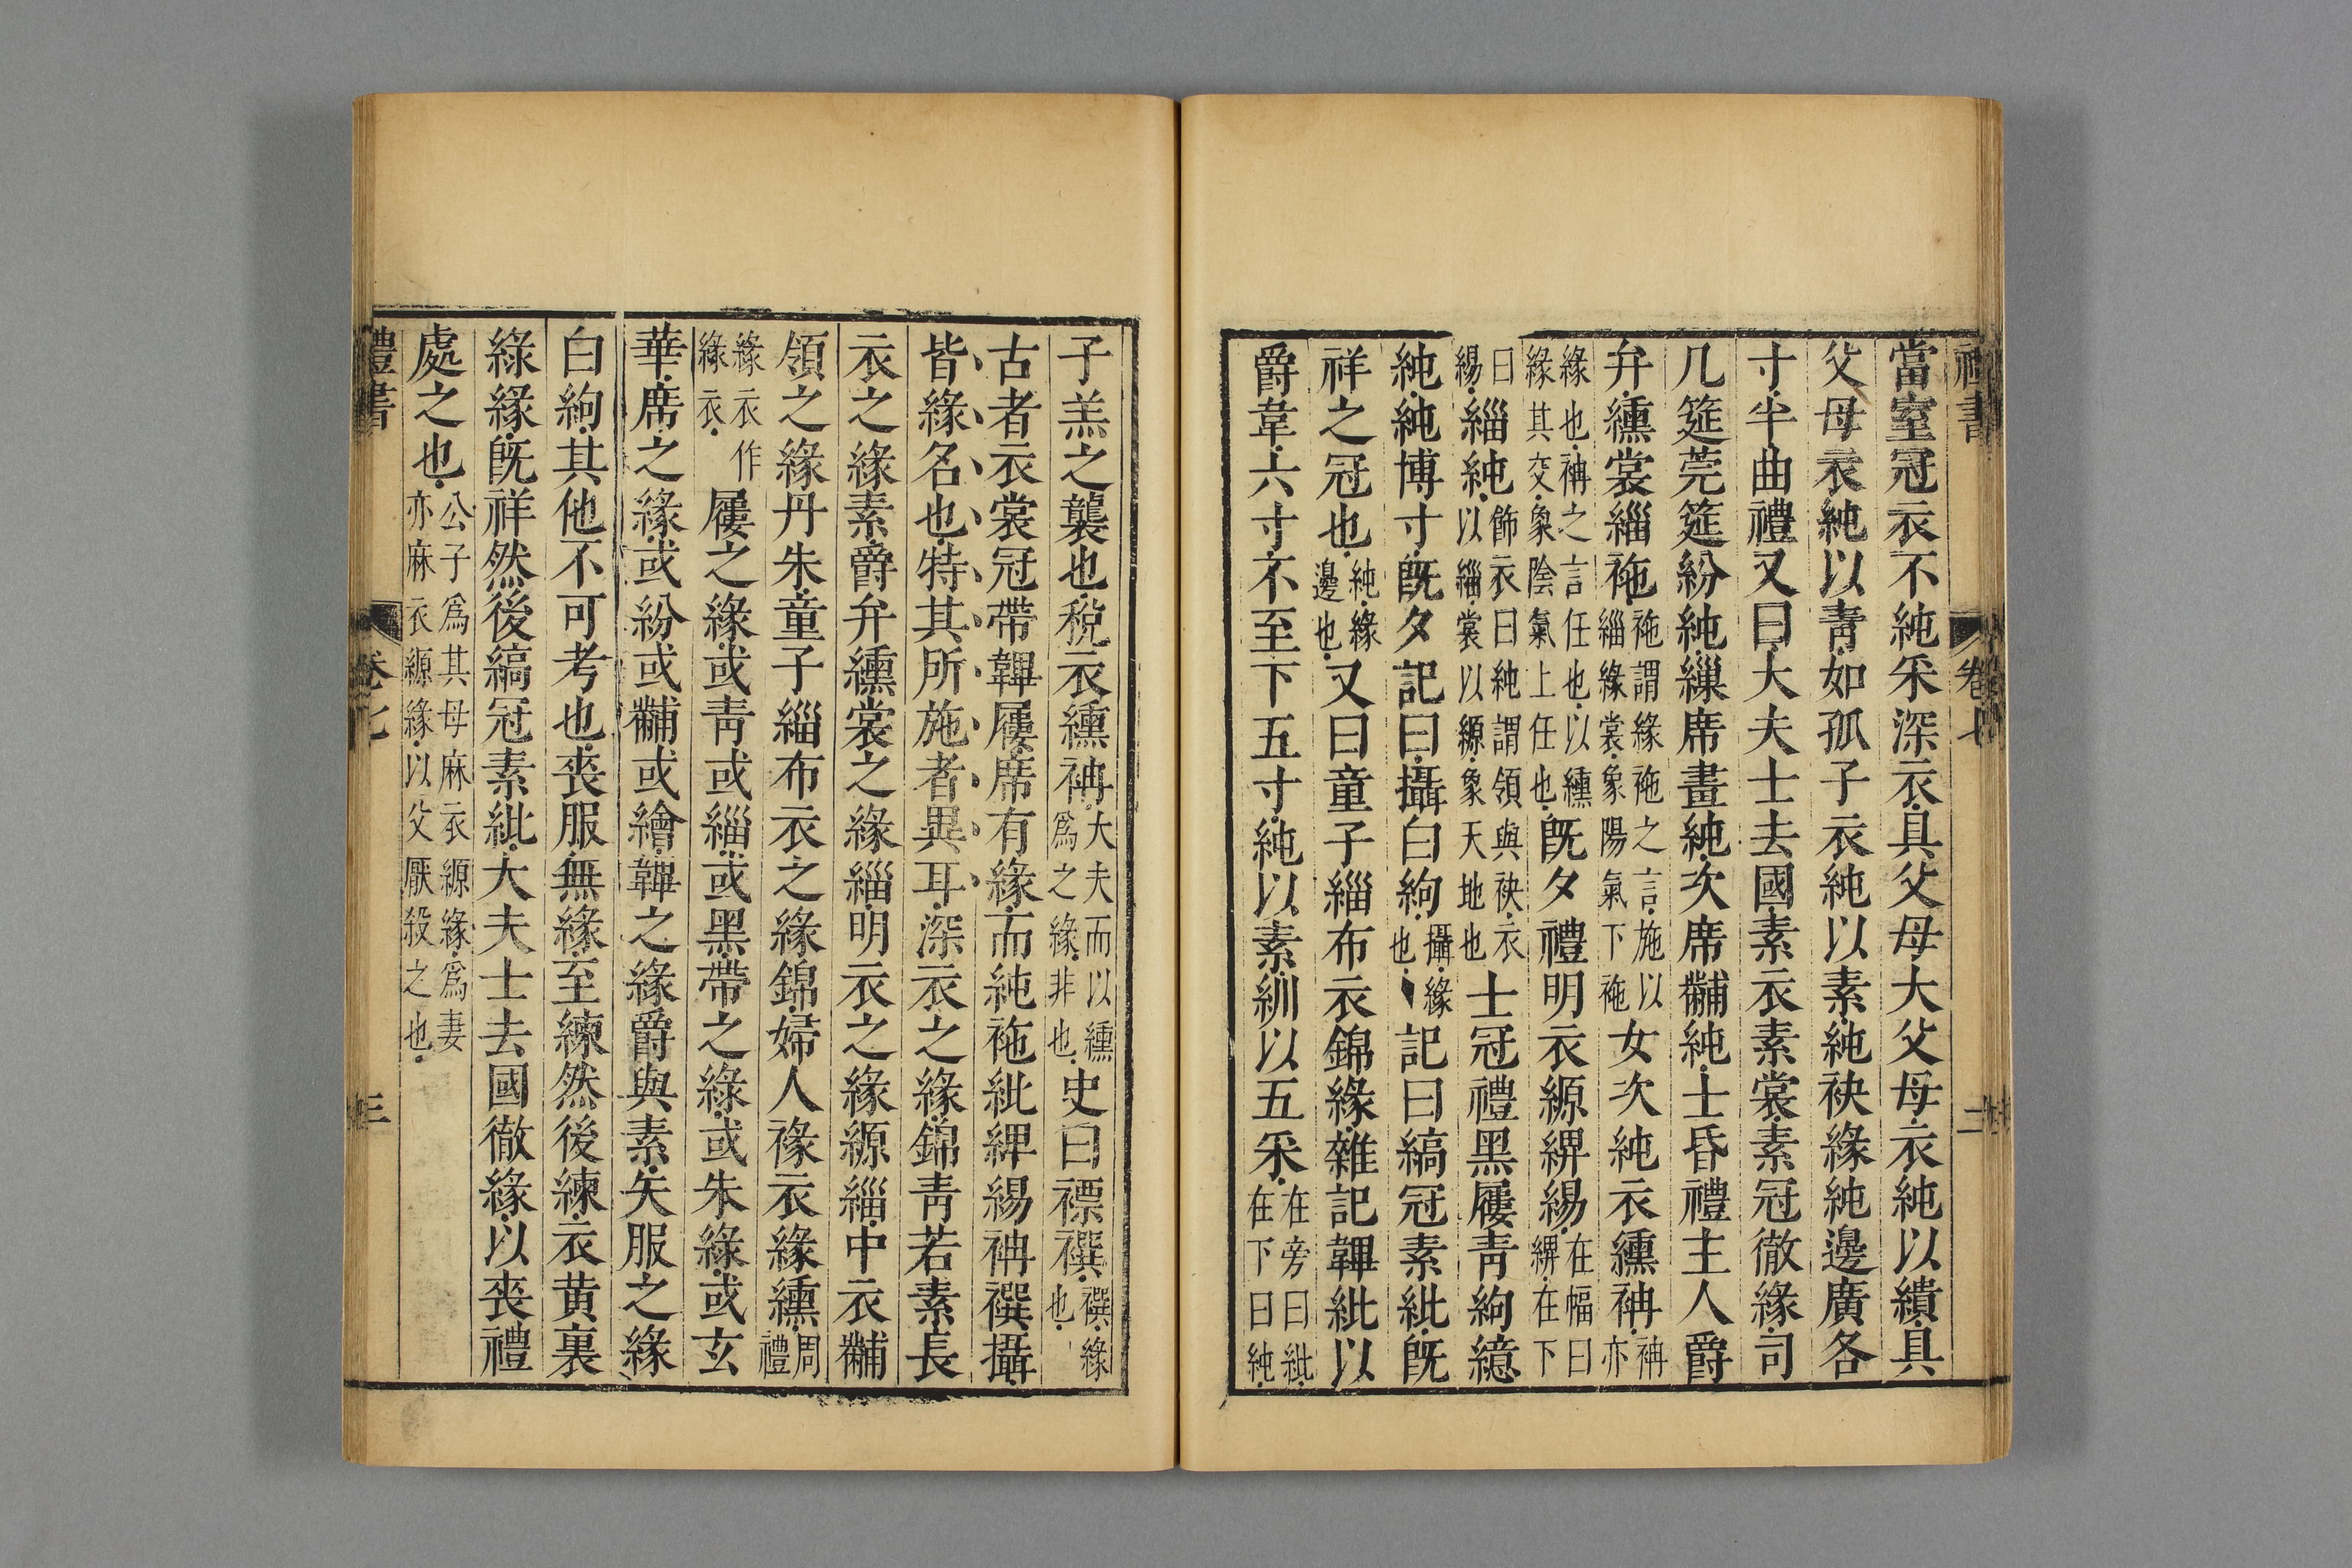 禮書 卷七 二
當室冠衣不純采深衣具父母大父母衣純以繢具
父母衣純以青如孤子衣純以素純袂緣純邊廣各
寸半曲禮又曰大夫士去國素衣素裳素冠徹緣司
几筵莞筵紛純繅席畫純次席黼純士昏禮主人爵
弁纁裳緇袘袘謂緣袘之言施以緇緣裳象陽氣下袘女次純衣纁袡袡亦
緣也袡之言任也以纁緣其交象陰氣上任也既夕禮明衣縓綼緆在幅曰綼在下
曰緆緇純飾衣曰純謂領與袂衣以緇裳以縓象天地也士冠禮黑屨青絇繶
純純博寸既夕記曰攝白絇攝緣也記曰縞冠素紕既
祥之冠也純緣邊也又曰童子緇布衣錦緣雜記韠紕以
爵韋六寸不至下五寸純以素紃以五采在旁曰紕在下曰純
子羔之襲也稅衣纁袡大夫而以纁爲之緣非也史曰褾襈襈緣也
古者衣裳冠帶韠屨席有緣而純袘紕綼緆袡襈攝
皆緣名也特其所施者異耳深衣之緣錦青若素長
衣之緣素爵弁纁裳之緣緇明衣之緣縓緇中衣黼
領之緣丹朱童子緇布衣之緣錦婦人褖衣緣纁周禮
緣衣作緣衣屨之緣或青或緇或黑帶之綠或朱綠或玄
華席之緣或紛或黼或繪韠之緣爵與素矢服之緣
白絇其他不可考也喪服無緣至練然後練衣黃裏
綠緣既祥然後縞冠素紕大夫士去國徹緣以喪禮
處之也公子爲其母麻衣縓緣爲妻亦麻衣縓緣以父厭殺之也
禮書 卷七 三